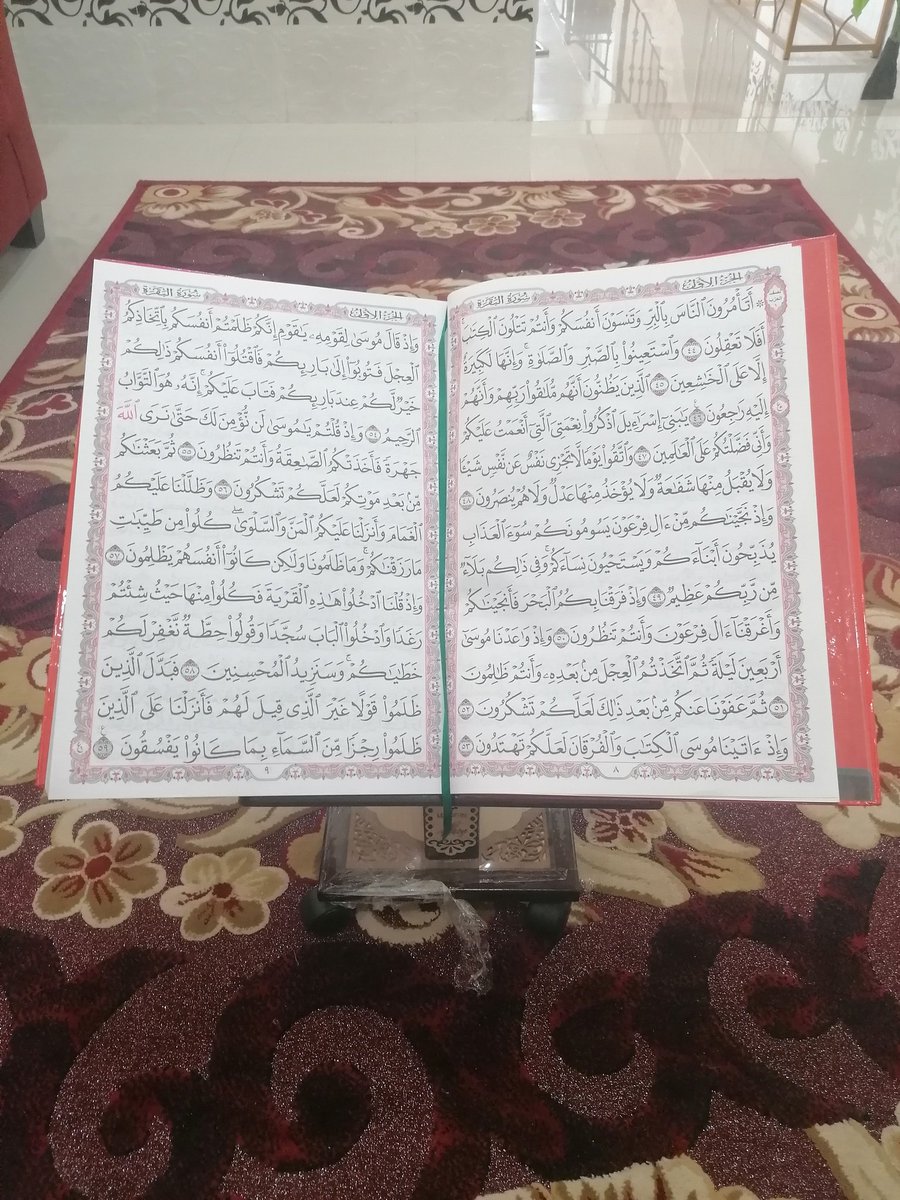 الجزء الأول
سورة البقرة
۞ أَتَأۡمُرُونَ ٱلنَّاسَ بِٱلۡبِرِّ وَتَنسَوۡنَ أَنفُسَكُمۡ وَأَنتُمۡ تَتۡلُونَ ٱلۡكِتَٰبَۚ
أَفَلَا تَعۡقِلُونَ ٤٤ وَٱسۡتَعِينُواْ بِٱلصَّبۡرِ وَٱلصَّلَوٰةِۚ وَإِنَّهَا لَكَبِيرَةٌ
إِلَّا عَلَى ٱلۡخَٰشِعِينَ ٤٥ ٱلَّذِينَ يَظُنُّونَ أَنَّهُم مُّلَٰقُواْ رَبِّهِمۡ وَأَنَّهُمۡ
إِلَيۡهِ رَٰجِعُونَ ٤٦ يَٰبَنِيٓ إِسۡرَٰٓءِيلَ ٱذۡكُرُواْ نِعۡمَتِيَ ٱلَّتِيٓ أَنۡعَمۡتُ عَلَيۡكُمۡ
وَأَنِّي فَضَّلۡتُكُمۡ عَلَى ٱلۡعَٰلَمِينَ ٤٧ وَٱتَّقُواْ يَوۡمٗا لَّا تَجۡزِي نَفۡسٌ عَن نَّفۡسٖ شَيۡـٔٗا
وَلَا يُقۡبَلُ مِنۡهَا شَفَٰعَةٞ وَلَا يُؤۡخَذُ مِنۡهَا عَدۡلٞ وَلَا هُمۡ يُنصَرُونَ ٤٨
وَإِذۡ نَجَّيۡنَٰكُم مِّنۡ ءَالِ فِرۡعَوۡنَ يَسُومُونَكُمۡ سُوٓءَ ٱلۡعَذَابِ
يُذَبِّحُونَ أَبۡنَآءَكُمۡ وَيَسۡتَحۡيُونَ نِسَآءَكُمۡۚ وَفِي ذَٰلِكُم بَلَآءٞ
مِّن رَّبِّكُمۡ عَظِيمٞ ٤٩ وَإِذۡ فَرَقۡنَا بِكُمُ ٱلۡبَحۡرَ فَأَنجَيۡنَٰكُمۡ
وَأَغۡرَقۡنَآ ءَالَ فِرۡعَوۡنَ وَأَنتُمۡ تَنظُرُونَ ٥٠ وَإِذۡ وَٰعَدۡنَا مُوسَىٰٓ
أَرۡبَعِينَ لَيۡلَةٗ ثُمَّ ٱتَّخَذۡتُمُ ٱلۡعِجۡلَ مِنۢ بَعۡدِهِۦ وَأَنتُمۡ ظَٰلِمُونَ
٥١ ثُمَّ عَفَوۡنَا عَنكُم مِّنۢ بَعۡدِ ذَٰلِكَ لَعَلَّكُمۡ تَشۡكُرُونَ ٥٢
وَإِذۡ ءَاتَيۡنَا مُوسَى ٱلۡكِتَٰبَ وَٱلۡفُرۡقَانَ لَعَلَّكُمۡ تَهۡتَدُونَ ٥٣
٨
سورة البقرة
الجزء الأول
وَإِذۡ قَالَ مُوسَىٰ لِقَوۡمِهِۦ يَٰقَوۡمِ إِنَّكُمۡ ظَلَمۡتُمۡ أَنفُسَكُم بِٱتِّخَاذِكُمُ
ٱلۡعِجۡلَ فَتُوبُوٓاْ إِلَىٰ بَارِئِكُمۡ فَٱقۡتُلُوٓاْ أَنفُسَكُمۡ ذَٰلِكُمۡ
خَيۡرٞ لَّكُمۡ عِندَ بَارِئِكُمۡ فَتَابَ عَلَيۡكُمۡۚ إِنَّهُۥ هُوَ ٱلتَّوَّابُ
ٱلرَّحِيمُ ٥٤ وَإِذۡ قُلۡتُمۡ يَٰمُوسَىٰ لَن نُّؤۡمِنَ لَكَ حَتَّىٰ نَرَى ٱللَّهَ
جَهۡرَةٗ فَأَخَذَتۡكُمُ ٱلصَّٰعِقَةُ وَأَنتُمۡ تَنظُرُونَ ٥٥ ثُمَّ بَعَثۡنَٰكُم
مِّنۢ بَعۡدِ مَوۡتِكُمۡ لَعَلَّكُمۡ تَشۡكُرُونَ ٥٦ وَظَلَّلۡنَا عَلَيۡكُمُ
ٱلۡغَمَامَ وَأَنزَلۡنَا عَلَيۡكُمُ ٱلۡمَنَّ وَٱلسَّلۡوَىٰۖ كُلُواْ مِن طَيِّبَٰتِ
مَا رَزَقۡنَٰكُمۡۚ وَمَا ظَلَمُونَا وَلَٰكِن كَانُوٓاْ أَنفُسَهُمۡ يَظۡلِمُونَ ٥٧
وَإِذۡ قُلۡنَا ٱدۡخُلُواْ هَٰذِهِ ٱلۡقَرۡيَةَ فَكُلُواْ مِنۡهَا حَيۡثُ شِئۡتُمۡ
رَغَدٗا وَٱدۡخُلُواْ ٱلۡبَابَ سُجَّدٗا وَقُولُواْ حِطَّةٞ نَّغۡفِرۡ لَكُمۡ
خَطَٰيَٰكُمۡۚ وَسَنَزِيدُ ٱلۡمُحۡسِنِينَ ٥٨ فَبَدَّلَ ٱلَّذِينَ
ظَلَمُواْ قَوۡلًا غَيۡرَ ٱلَّذِي قِيلَ لَهُمۡ فَأَنزَلۡنَا عَلَى ٱلَّذِينَ
ظَلَمُواْ رِجۡزٗا مِّنَ ٱلسَّمَآءِ بِمَا كَانُواْ يَفۡسُقُونَ ٥٩
٩